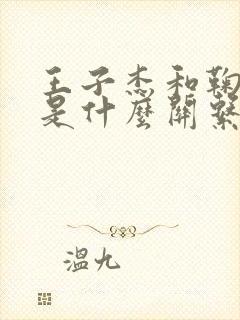 王子杰和鞠
是什麼關繫
溫九